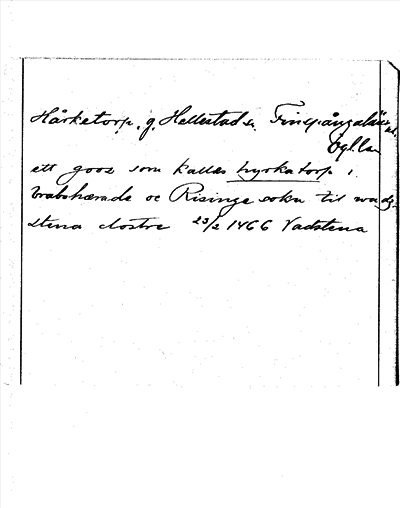 Hårketorp, g. Hellestad sn. Finspångaläns hd.
Ögl. län
ett goos som kallas hyrkatorp i
brabohærade oc Risinge sokn til wadz-
stena clostre 23/2 1466 Vadstena